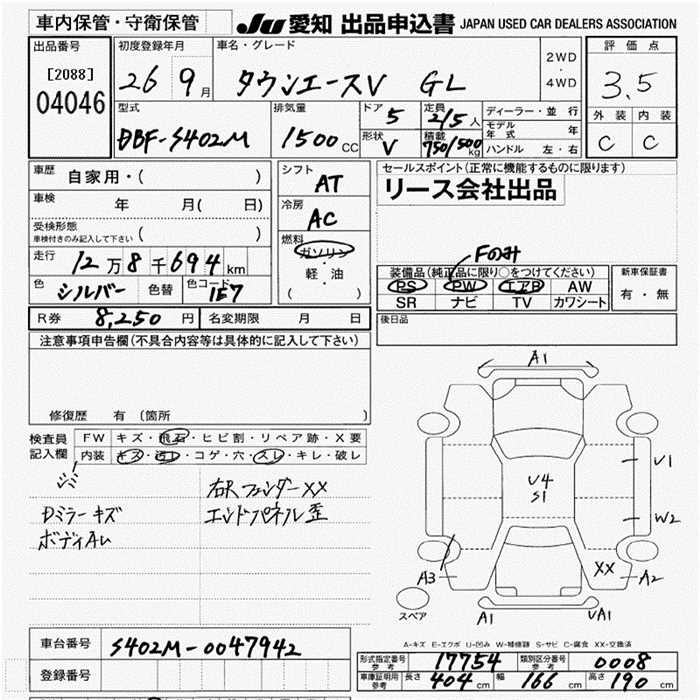 車内保管・守衛保管
JU 愛知 出品申込書 JAPAN USED CAR DEALERS ASSOCIATION
出品番号
[2088]
04046
初度登録年月
26 9月
車名・グレード
タウンエースV GL
2WD
・
4WD
評価点
3.5
外装 内装
C C
型式
DBF-S402M
排気量
1500 CC
ドア 5
形状 V
定員 2/5人
積載 750/500 kg
ディーラー・並行
モデル年式 年
ハンドル 左・右
車歴 自家用・( )
車検 年 月( 日)
受検形態 ( )
車検付きのみ記入して下さい
走行 12万8千694km
色 シルバー 色替 色コード 1E7
シフト
AT
冷房
AC
燃料
ガソリン
・
軽・油
( )
セールスポイント(正常に機能するものに限ります)
リース会社出品
Fのみ
装備品(純正品に限り○をつけてください)
PS PW エアB AW
SR ナビ TV カワシート
新車保証書
有・無
R券 8,250円 名変期限 月 日
後日品
注意事項申告欄(不具合内容等は具体的に記入して下さい)
修復歴 有(箇所 )
検査員記入欄
FW キズ・飛石・ヒビ割・リペア跡・X要
内装 キズ・汚レ・コゲ・穴・スレ・キレ・破レ
Dミラーキズ
ボディAu
右Rフェンダー XX
エンドパネル歪
A1
U4
S1
U1
W2
A3
XX
A2
スペア
A1
UA1
A-キズ E-エクボ U-凹み W-補修跡 S-サビ C-腐食 XX-交換済
車台番号 S402M-0047942
登録番号
形式指定番号参考 17754 類別区分番号参考 0008
車庫証明用参考 長さ 404cm 幅 166cm 高さ 190cm